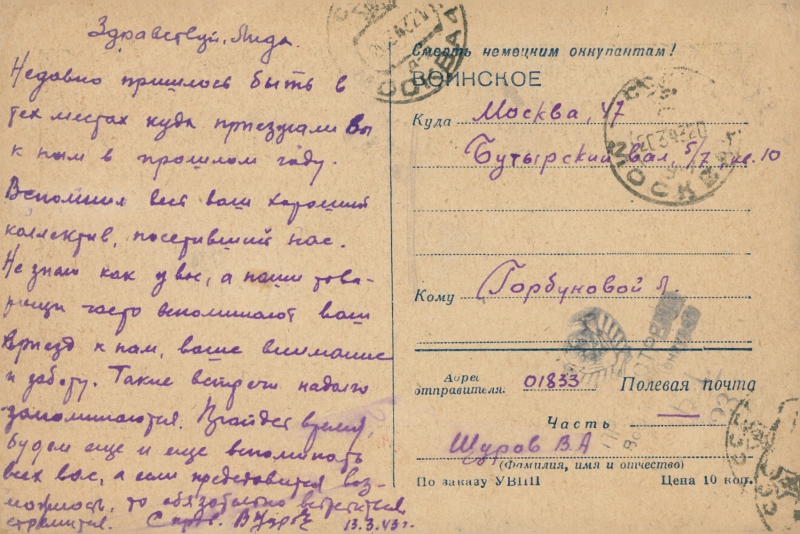 Здравствуй, Лида.
Недавно пришлось быть в
тех местах куда приезжали Вы
к нам в прошлом году.
Вспомнил весь ваш хороший
коллектив, посетивший нас.
Не знаю как у вас, а наши това-
рищи часто вспоминают ваш
приезд к нам, ваше внимание
и заботу. Такие встречи надолго
запоминаются. Пройдет время,
будем еще и еще вспоминать
всех вас, а если представится воз-
можность, то обязательно встретиться
стремится. С прив. 13.3.43 г.
Смерть немецким оккупантам!
ВОИНСКОЕ
Куда Москва, 47
Бутырский вал, 5/7 кв. 10
Кому Горбуновой Л.
Адрес отправителя: 01833 Полевая почта
Часть
Щуров В.А
(Фамилия, имя и отчество)
По заказу УВПП Цена 10 коп.
МОСКВА
МОСКВА